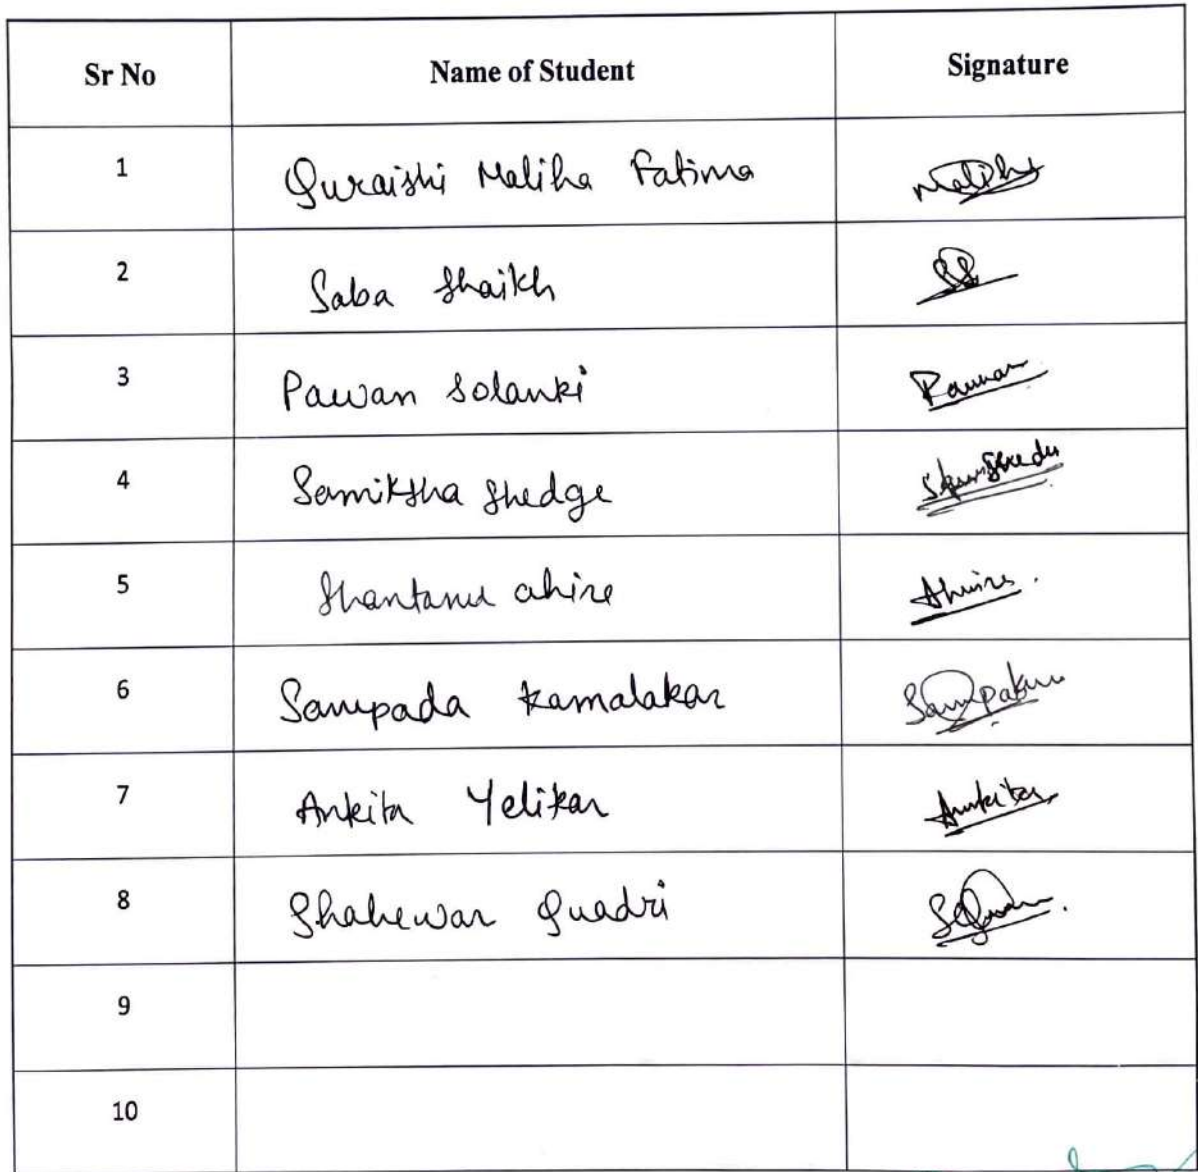 Sr No Name of Student Signature
1 Quraishi Maliha Fatima Maliha
2 Saba Shaikh
3 Pawan Solanki Pawan
4 Samiksha Shedge
5 Shantanu ahire Ahire.
6 Sampada Kamalakar
7 Ankita Yelikar Ankita
8 Shahewar Quadri
9
10